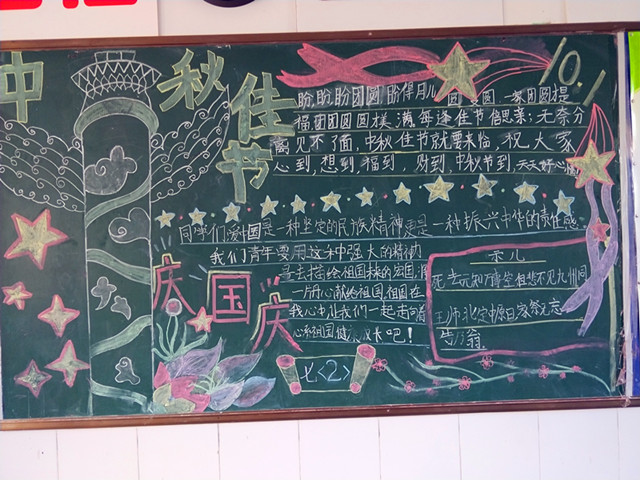 中秋佳节
10.1
盼盼盼团圆盼伴月儿回又圆一家团圆提
福团团圆圆样满每逢佳节倍思亲:无奈分
离见不了面,中秋佳节就要来临,祝大家
心到,想到,福到,财到,中秋节到,天天好心情
同学们爱国是一种坚定的民族精神更是一种振兴中华的责任感
我们青年要用这种强大的精神
去描绘祖国的宏图,将
一片丹心献给祖国,祖国在
我心中,让我们一起走向
祖国吧!
庆国庆
七<2>
示儿
死去元知万事空但悲不见九州同
王师北定中原日家祭无忘
告乃翁